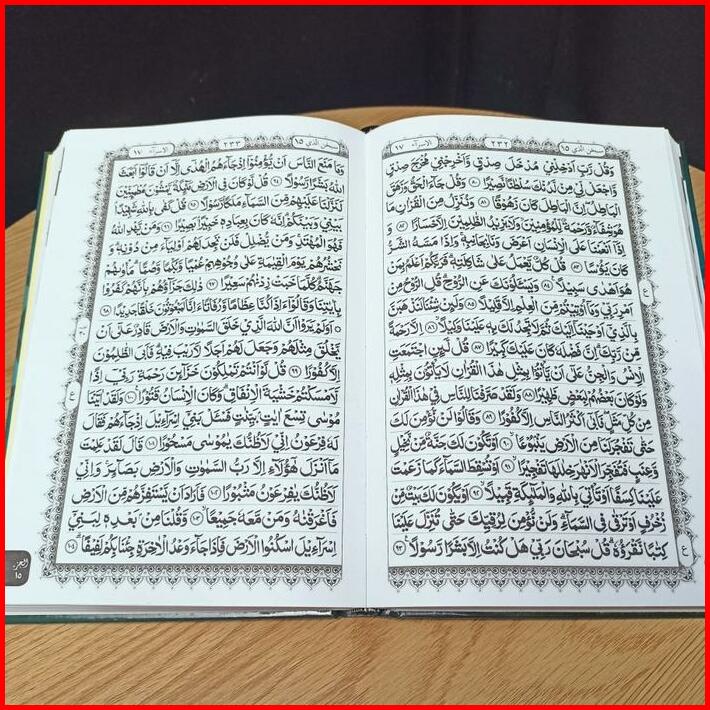 سبحن الذي ١٥
٢٣٢
الاسرآء ١٧
وَقُلْ رَّبِّ اَدْخِلْنِيْ مُدْخَلَ صِدْقٍ وَّاَخْرِجْنِيْ مُخْرَجَ صِدْقٍ
وَّاجْعَلْ لِّيْ مِنْ لَّدُنْكَ سُلْطٰنًا نَّصِيْرًا ٨٠ وَقُلْ جَآءَ الْحَقُّ وَزَهَقَ
الْبَاطِلُ ۗاِنَّ الْبَاطِلَ كَانَ زَهُوْقًا ٨١ وَنُنَزِّلُ مِنَ الْقُرْاٰنِ مَا
هُوَ شِفَآءٌ وَّرَحْمَةٌ لِّلْمُؤْمِنِيْنَۙ وَلَا يَزِيْدُ الظّٰلِمِيْنَ اِلَّا خَسَارًا ٨٢
وَاِذَآ اَنْعَمْنَا عَلَى الْاِنْسَانِ اَعْرَضَ وَنَاٰ بِجَانِبِهٖۚ وَاِذَا مَسَّهُ الشَّرُّ
كَانَ يَـُٔوْسًا ٨٣ قُلْ كُلٌّ يَّعْمَلُ عَلٰى شَاكِلَتِهٖۗ فَرَبُّكُمْ اَعْلَمُ بِمَنْ
هُوَ اَهْدٰى سَبِيْلًا ٨٤ وَيَسْـَٔلُوْنَكَ عَنِ الرُّوْحِۗ قُلِ الرُّوْحُ مِنْ
اَمْرِ رَبِّيْ وَمَآ اُوْتِيْتُمْ مِّنَ الْعِلْمِ اِلَّا قَلِيْلًا ٨٥ وَلَىِٕنْ شِئْنَا لَنَذْهَبَنَّ
بِالَّذِيْٓ اَوْحَيْنَآ اِلَيْكَ ثُمَّ لَا تَجِدُ لَكَ بِهٖ عَلَيْنَا وَكِيْلًا ٨٦ اِلَّا رَحْمَةً
مِّنْ رَّبِّكَۗ اِنَّ فَضْلَهٗ كَانَ عَلَيْكَ كَبِيْرًا ٨٧ قُلْ لَّىِٕنِ اجْتَمَعَتِ
الْاِنْسُ وَالْجِنُّ عَلٰٓى اَنْ يَّأْتُوْا بِمِثْلِ هٰذَا الْقُرْاٰنِ لَا يَأْتُوْنَ بِمِثْلِهٖ
وَلَوْ كَانَ بَعْضُهُمْ لِبَعْضٍ ظَهِيْرًا ٨٨ وَلَقَدْ صَرَّفْنَا لِلنَّاسِ فِيْ هٰذَا الْقُرْاٰنِ
مِنْ كُلِّ مَثَلٍۖ فَاَبٰىٓ اَكْثَرُ النَّاسِ اِلَّا كُفُوْرًا ٨٩ وَقَالُوْا لَنْ نُّؤْمِنَ لَكَ
حَتّٰى تَفْجُرَ لَنَا مِنَ الْاَرْضِ يَنْۢبُوْعًا ٩٠ اَوْ تَكُوْنَ لَكَ جَنَّةٌ مِّنْ نَّخِيْلٍ
وَّعِنَبٍ فَتُفَجِّرَ الْاَنْهٰرَ خِلٰلَهَا تَفْجِيْرًا ٩١ اَوْ تُسْقِطَ السَّمَآءَ كَمَا زَعَمْتَ
عَلَيْنَا كِسَفًا اَوْ تَأْتِيَ بِاللّٰهِ وَالْمَلٰۤىِٕكَةِ قَبِيْلًا ٩٢ اَوْ يَكُوْنَ لَكَ بَيْتٌ مِّنْ
زُخْرُفٍ اَوْ تَرْقٰى فِى السَّمَآءِۗ وَلَنْ نُّؤْمِنَ لِرُقِيِّكَ حَتّٰى تُنَزِّلَ عَلَيْنَا
كِتٰبًا نَّقْرَؤُهٗۗ قُلْ سُبْحَانَ رَبِّيْ هَلْ كُنْتُ اِلَّا بَشَرًا رَّسُوْلًا ٩٣
ع
ع
سبحن الذي ١٥
٢٣٣
الاسرآء ١٧
وَمَا مَنَعَ النَّاسَ اَنْ يُّؤْمِنُوْٓا اِذْ جَآءَهُمُ الْهُدٰٓى اِلَّآ اَنْ قَالُوْٓا اَبَعَثَ
اللّٰهُ بَشَرًا رَّسُوْلًا ٩٤ قُلْ لَّوْ كَانَ فِى الْاَرْضِ مَلٰۤىِٕكَةٌ يَّمْشُوْنَ مُطْمَىِٕنِّيْنَ
لَنَزَّلْنَا عَلَيْهِمْ مِّنَ السَّمَآءِ مَلَكًا رَّسُوْلًا ٩٥ قُلْ كَفٰى بِاللّٰهِ شَهِيْدًاۢ
بَيْنِيْ وَبَيْنَكُمْۗ اِنَّهٗ كَانَ بِعِبَادِهٖ خَبِيْرًاۢ بَصِيْرًا ٩٦ وَمَنْ يَّهْدِ اللّٰهُ
فَهُوَ الْمُهْتَدِۚ وَمَنْ يُّضْلِلْ فَلَنْ تَجِدَ لَهُمْ اَوْلِيَآءَ مِنْ دُوْنِهٖۗ وَ
نَحْشُرُهُمْ يَوْمَ الْقِيٰمَةِ عَلٰى وُجُوْهِهِمْ عُمْيًا وَّبُكْمًا وَّصُمًّاۗ مَأْوٰىهُمْ
جَهَنَّمُۗ كُلَّمَا خَبَتْ زِدْنٰهُمْ سَعِيْرًا ٩٧ ذٰلِكَ جَزَآؤُهُمْ بِاَنَّهُمْ كَفَرُوْا
بِاٰيٰتِنَا وَقَالُوْٓا ءَاِذَا كُنَّا عِظَامًا وَّرُفَاتًا ءَاِنَّا لَمَبْعُوْثُوْنَ خَلْقًا جَدِيْدًا ٩٨
اَوَلَمْ يَرَوْا اَنَّ اللّٰهَ الَّذِيْ خَلَقَ السَّمٰوٰتِ وَالْاَرْضَ قَادِرٌ عَلٰٓى اَنْ
يَّخْلُقَ مِثْلَهُمْ وَجَعَلَ لَهُمْ اَجَلًا لَّا رَيْبَ فِيْهِۗ فَاَبَى الظّٰلِمُوْنَ
اِلَّا كُفُوْرًا ٩٩ قُلْ لَّوْ اَنْتُمْ تَمْلِكُوْنَ خَزَآىِٕنَ رَحْمَةِ رَبِّيْٓ اِذًا
لَّاَمْسَكْتُمْ خَشْيَةَ الْاِنْفَاقِۗ وَكَانَ الْاِنْسَانُ قَتُوْرًا ١٠٠ وَلَقَدْ اٰتَيْنَا
مُوْسٰى تِسْعَ اٰيٰتٍۢ بَيِّنٰتٍ فَسْـَٔلْ بَنِيْٓ اِسْرَآءِيْلَ اِذْ جَآءَهُمْ فَقَالَ
لَهٗ فِرْعَوْنُ اِنِّيْ لَاَظُنُّكَ يٰمُوْسٰى مَسْحُوْرًا ١٠١ قَالَ لَقَدْ عَلِمْتَ
مَآ اَنْزَلَ هٰٓؤُلَآءِ اِلَّا رَبُّ السَّمٰوٰتِ وَالْاَرْضِ بَصَآىِٕرَۚ وَاِنِّيْ
لَاَظُنُّكَ يٰفِرْعَوْنُ مَثْبُوْرًا ١٠٢ فَاَرَادَ اَنْ يَّسْتَفِزَّهُمْ مِّنَ الْاَرْضِ
فَاَغْرَقْنٰهُ وَمَنْ مَّعَهٗ جَمِيْعًا ١٠٣ وَّقُلْنَا مِنْۢ بَعْدِهٖ لِبَنِيْٓ
اِسْرَآءِيْلَ اسْكُنُوا الْاَرْضَ فَاِذَا جَآءَ وَعْدُ الْاٰخِرَةِ جِئْنَا بِكُمْ لَفِيْفًا ١٠٤
ع
الجزء
١٥